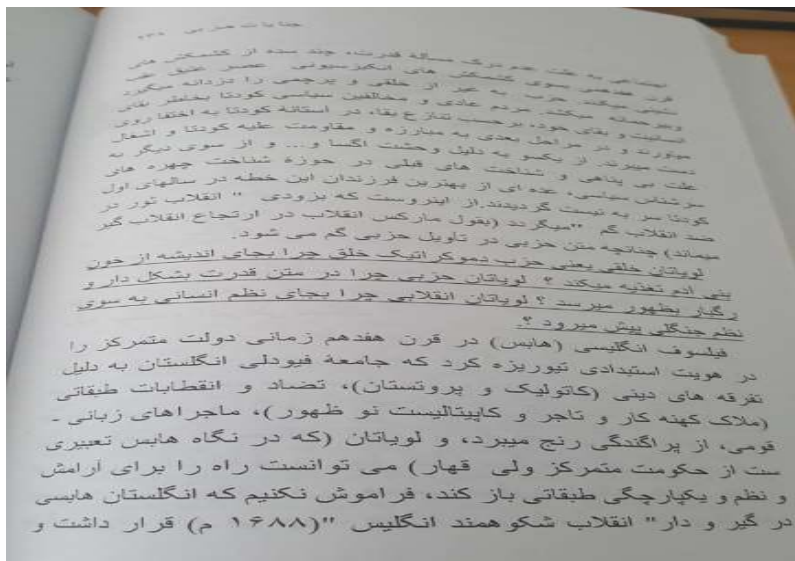 جنایات حزبی ۲۳۰
اجتماعی به علت عدم درک مسألۀ قدرت، چند سده از کشمکش های
قرن هفدهمی سوی کشمکش های انکیزسیونی عصر عتیق عقب
نشینی میکند. حزب به غیر از خلقی و پرچمی را دزدانه میگیرد
وبیرحمانه میکشد. مردم عادی و مخالفین سیاسی کودتا بخاطر بقای
انسانیت و بقای خود، برحسب تنازع بقاء در آستانۀ کودتا به اختفا روی
میاورند و در مراحل بعدی به مبارزه و مقاومت علیه کودتا و اشغال
دست میبرند. از یکسو به دلیل وحشت اگسا و... و از سوی دیگر به
علت بی پناهی و شناخت های قبلی در حوزۀ شناخت چهره های
سرشناس سیاسی، عده ای از بهترین فرزندان این خطه در سالهای اول
کودتا سر به نیست گردیدند.از اینروست که بزودی " انقلاب ثور در
ضد انقلاب گم "میگردد (بقول مارکس انقلاب در ارتجاع انقلاب گیر
میماند) چنانچه متن حزبی در تأویل حزبی گم می شود.
لویاتان خلقی یعنی حزب دموکراتیک خلق چرا بجای اندیشه از خون
بنی آدم تغذیه میکند ؟ لویاتان حزبی چرا در متن قدرت بشکل دار و
رگبار بظهور میرسد ؟ لویاتان انقلابی چرا بجای نظم انسانی به سوی
نظم جنگلی پیش میرود ؟.
فیلسوف انگلیسی (هابس) در قرن هفدهم زمانی دولت متمرکز را
در هویت استبدادی تیوریزه کرد که جامعۀ فیودلی انگلستان به دلیل
تفرقه های دینی (کاتولیک و پروتستان)، تضاد و انقطابات طبقاتی
(ملاک کهنه کار و تاجر و کاپیتالیست نو ظهور)، ماجراهای زبانی ـ
قومی، از پراگندگی رنج میبرد، و لویاتان (که در نگاه هابس تعبیری
ست از حکومت متمرکز ولی قهار) می توانست راه را برای آرامش
و نظم و یکپارچگی طبقاتی باز کند، فراموش نکنیم که انگلستان هابسی
در گیر و دار" انقلاب شکوهمند انگلیس "(۱۶۸۸ م) قرار داشت و